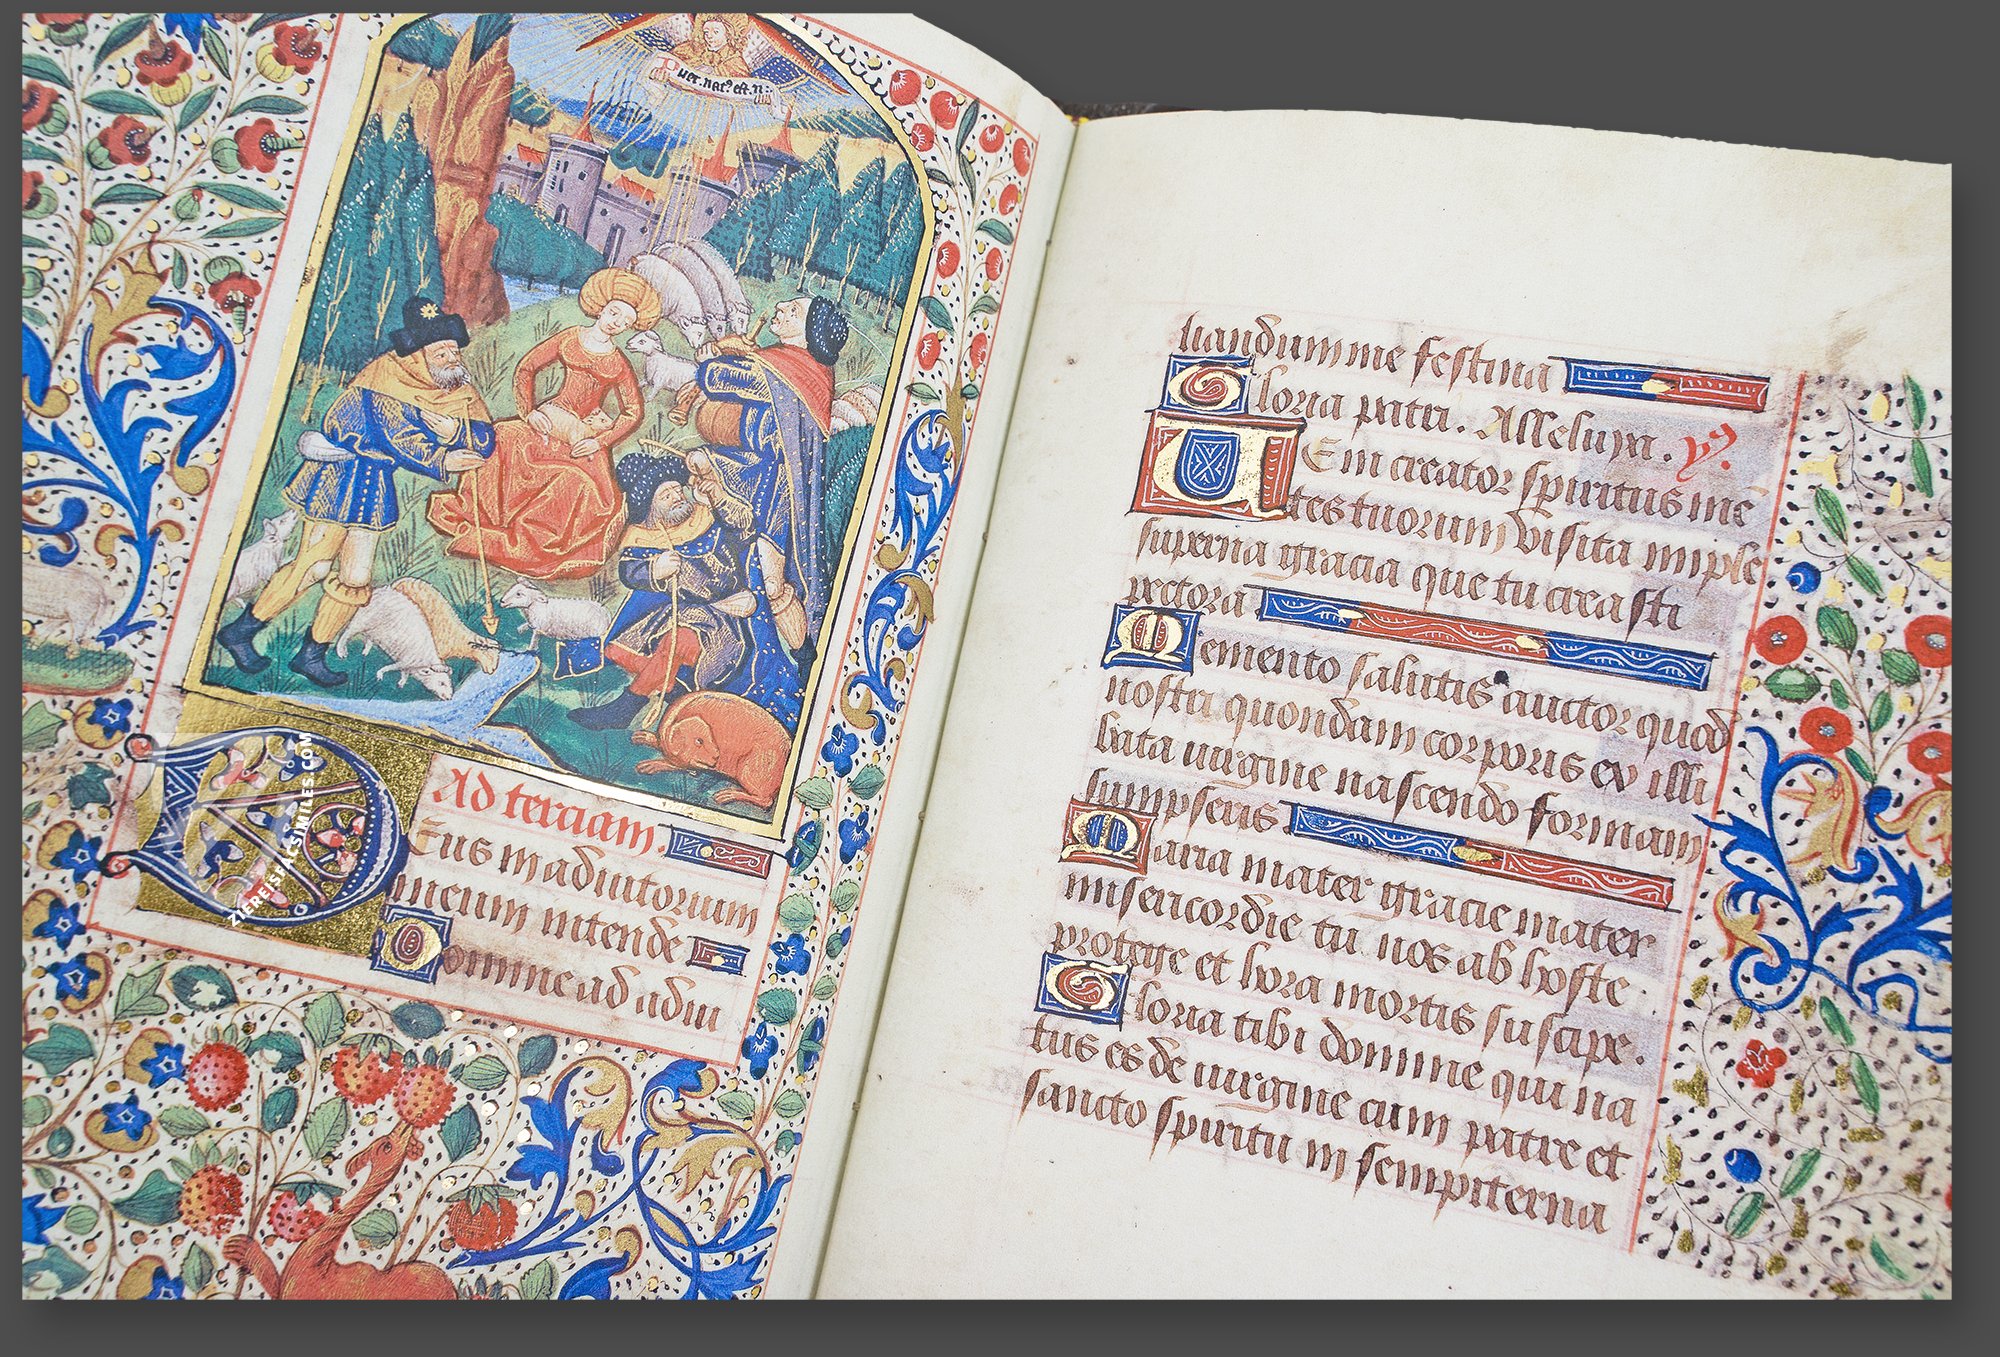 Puer. nat⁹. est. n:
Ad terciam.
Deus in adiutorium
meum intende
Domine ad adiu
uandum me festina
Gloria patri. Alleluya. hy.
Veni creator spiritus mē
tes tuorum visita imple
superna gracia que tu creasti
pectora
Memento salutis auctor quod
nostri quondam corporis ex illi
bata uirgine nascendo formam
sumpseris
Maria mater gracie mater
misericordie tu nos ab hoste
protege et hora mortis suscipe.
Gloria tibi domine qui na
tus es de uirgine cum patre et
sancto spiritu in sempiterna
ZIEREISFACSIMILES.COM